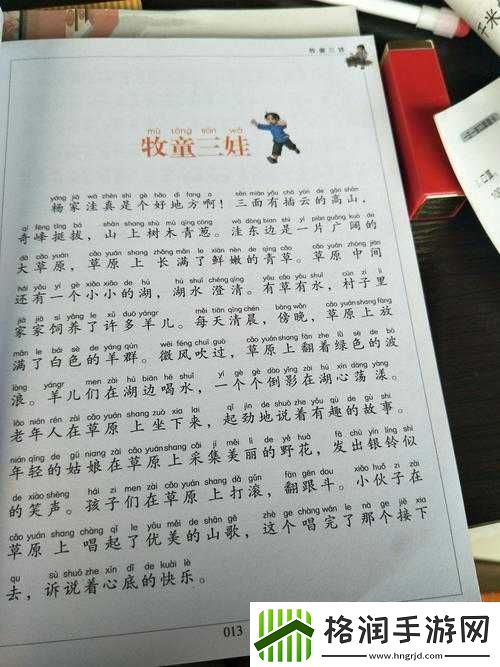 牧童三娃
mù tóng sān wá
牧童三娃
yáng jiā wā zhēn shì gè hǎo dì fang a sān miàn yǒu chā yún de gāo shān
杨家洼真是个好地方啊！三面有插云的高山，
qí fēng tǐng bá shān shang shù mù qīng cōng wā dōng biān shì yí piàn guǎng kuò de
奇峰挺拔，山上树木青葱。洼东边是一片广阔的
dà cǎo yuán cǎo yuán shang zhǎng mǎn le xiān nèn de qīng cǎo cǎo yuán zhōng jiān
大草原，草原上长满了鲜嫩的青草。草原中间
hái yǒu yí gè xiǎo xiǎo de hú hú shuǐ chéng qīng yǒu cǎo yǒu shuǐ cūn zi lǐ
还有一个小小的湖，湖水澄清。有草有水，村子里
jiā jiā sì yǎng le xǔ duō yángr měi tiān qīng chén bàng wǎn cǎo yuán shang fàng
家家饲养了许多羊儿。每天清晨，傍晚，草原上放
mǎn le bái sè de yáng qún wēi fēng chuī guò cǎo yuán shang fān zhe lǜ sè de bō
满了白色的羊群。微风吹过，草原上翻着绿色的波
làng yángr men zài hú biān hē shuǐ yí gè gè dào yǐng zài hú xīn dàng yàng
浪。羊儿们在湖边喝水，一个个倒影在湖心荡漾。
lǎo nián rén zài cǎo yuán shang zuò xia lai qǐ jìn de shuō zhe yǒu qù de gù shi
老年人在草原上坐下来，起劲地说着有趣的故事。
nián qīng de gū niang zài cǎo yuán shang cǎi jí měi lì de yě huā fā chū yín líng sì
年轻的姑娘在草原上采集美丽的野花，发出银铃似
de xiào shēng hái zi men zài cǎo yuán shang dǎ gǔn fān gēn dou xiǎo huǒ zi zài
的笑声。孩子们在草原上打滚，翻跟斗。小伙子在
cǎo yuán shang chàng qǐ le yōu měi de shān gē zhè ge chàng wán le nà ge jiē xia
草原上唱起了优美的山歌，这个唱完了那个接下
qu sù shuō zhe xīn dǐ de kuài lè
去，诉说着心底的快乐。
013
千米
格润手游网
www.hngrjd.com